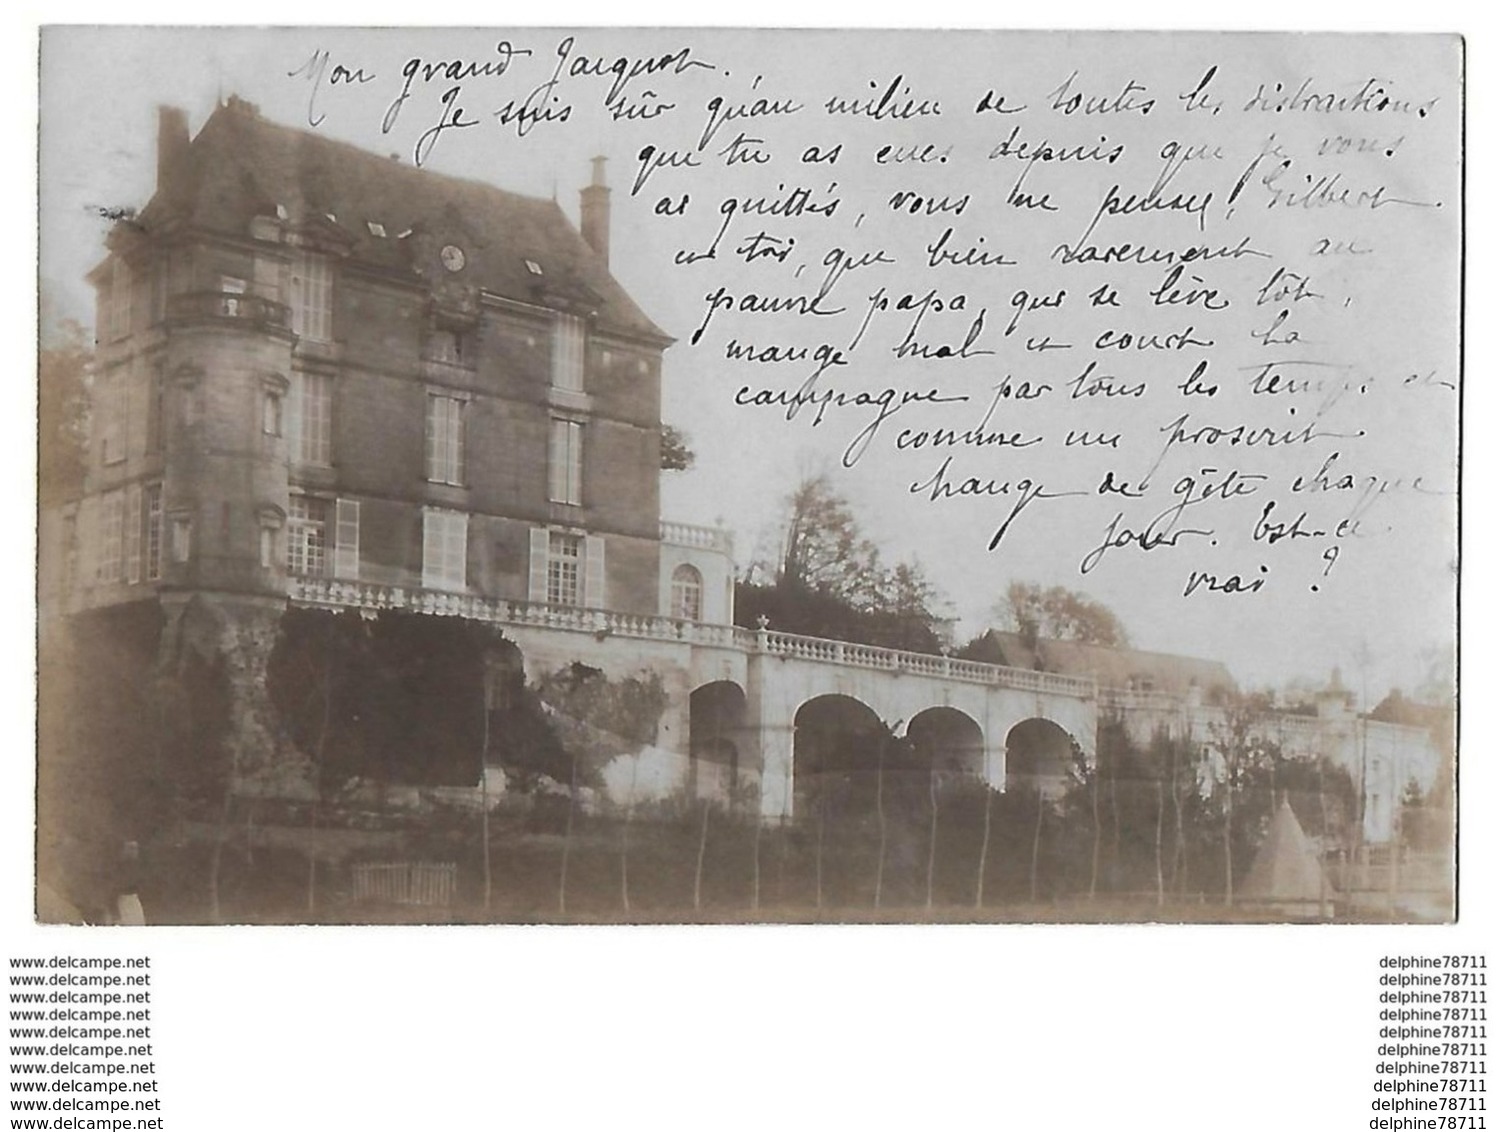 Mon grand Jacquot.
Je suis sûr qu'au milieu de toutes les distractions
que tu as eues depuis que je vous
ai quittés, vous ne pensez, Gilbert
et toi, que bien rarement au
pauvre papa, qui se lève tôt,
mange mal et court la
campagne par tous les temps et
comme un proscrit
change de gîte chaque
jour. Est-ce
vrai ?
www.delcampe.net delphine78711
www.delcampe.net delphine78711
www.delcampe.net delphine78711
www.delcampe.net delphine78711
www.delcampe.net delphine78711
www.delcampe.net delphine78711
www.delcampe.net delphine78711
www.delcampe.net delphine78711
www.delcampe.net delphine78711
www.delcampe.net delphine78711